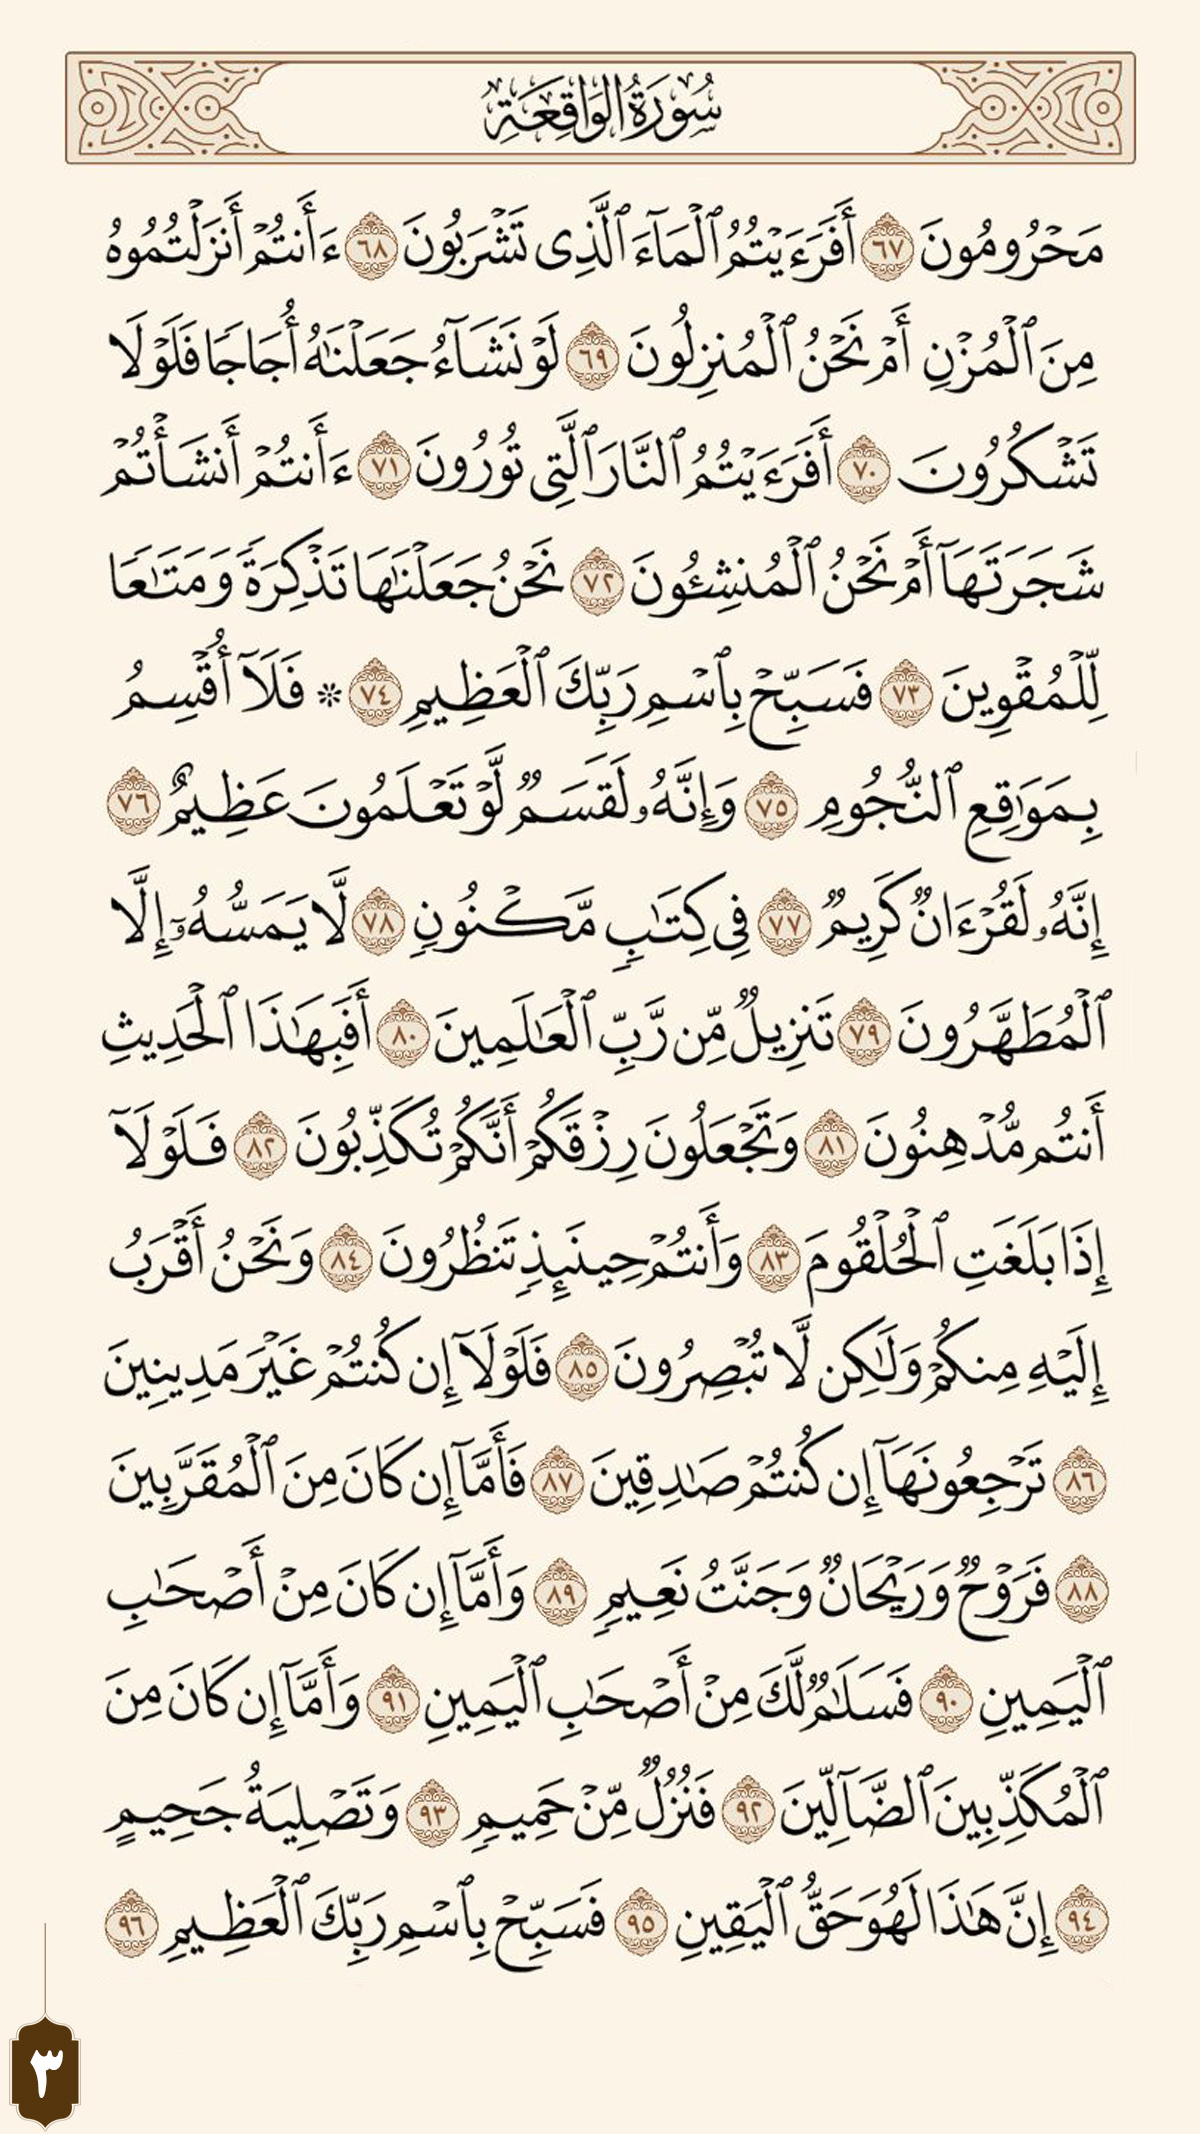 سُورَةُ الوَاقِعَةِ
مَحۡرُومُونَ ٦٧ أَفَرَءَيۡتُمُ ٱلۡمَآءَ ٱلَّذِي تَشۡرَبُونَ ٦٨ ءَأَنتُمۡ أَنزَلۡتُمُوهُ
مِنَ ٱلۡمُزۡنِ أَمۡ نَحۡنُ ٱلۡمُنزِلُونَ ٦٩ لَوۡ نَشَآءُ جَعَلۡنَٰهُ أُجَاجٗا فَلَوۡلَا
تَشۡكُرُونَ ٧٠ أَفَرَءَيۡتُمُ ٱلنَّارَ ٱلَّتِي تُورُونَ ٧١ ءَأَنتُمۡ أَنشَأۡتُمۡ
شَجَرَتَهَآ أَمۡ نَحۡنُ ٱلۡمُنشِـُٔونَ ٧٢ نَحۡنُ جَعَلۡنَٰهَا تَذۡكِرَةٗ وَمَتَٰعٗا
لِّلۡمُقۡوِينَ ٧٣ فَسَبِّحۡ بِٱسۡمِ رَبِّكَ ٱلۡعَظِيمِ ٧٤ ۞ فَلَآ أُقۡسِمُ
بِمَوَٰقِعِ ٱلنُّجُومِ ٧٥ وَإِنَّهُۥ لَقَسَمٞ لَّوۡ تَعۡلَمُونَ عَظِيمٌ ٧٦
إِنَّهُۥ لَقُرۡءَانٞ كَرِيمٞ ٧٧ فِي كِتَٰبٖ مَّكۡنُونٖ ٧٨ لَّا يَمَسُّهُۥٓ إِلَّا
ٱلۡمُطَهَّرُونَ ٧٩ تَنزِيلٞ مِّن رَّبِّ ٱلۡعَٰلَمِينَ ٨٠ أَفَبِهَٰذَا ٱلۡحَدِيثِ
أَنتُم مُّدۡهِنُونَ ٨١ وَتَجۡعَلُونَ رِزۡقَكُمۡ أَنَّكُمۡ تُكَذِّبُونَ ٨٢ فَلَوۡلَآ
إِذَا بَلَغَتِ ٱلۡحُلۡقُومَ ٨٣ وَأَنتُمۡ حِينَئِذٖ تَنظُرُونَ ٨٤ وَنَحۡنُ أَقۡرَبُ
إِلَيۡهِ مِنكُمۡ وَلَٰكِن لَّا تُبۡصِرُونَ ٨٥ فَلَوۡلَآ إِن كُنتُمۡ غَيۡرَ مَدِينِينَ
٨٦ تَرۡجِعُونَهَآ إِن كُنتُمۡ صَٰدِقِينَ ٨٧ فَأَمَّآ إِن كَانَ مِنَ ٱلۡمُقَرَّبِينَ
٨٨ فَرَوۡحٞ وَرَيۡحَانٞ وَجَنَّتُ نَعِيمٖ ٨٩ وَأَمَّآ إِن كَانَ مِنۡ أَصۡحَٰبِ
ٱلۡيَمِينِ ٩٠ فَسَلَٰمٞ لَّكَ مِنۡ أَصۡحَٰبِ ٱلۡيَمِينِ ٩١ وَأَمَّآ إِن كَانَ مِنَ
ٱلۡمُكَذِّبِينَ ٱلضَّآلِّينَ ٩٢ فَنُزُلٞ مِّنۡ حَمِيمٖ ٩٣ وَتَصۡلِيَةُ جَحِيمٍ
٩٤ إِنَّ هَٰذَا لَهُوَ حَقُّ ٱلۡيَقِينِ ٩٥ فَسَبِّحۡ بِٱسۡمِ رَبِّكَ ٱلۡعَظِيمِ ٩٦
٣